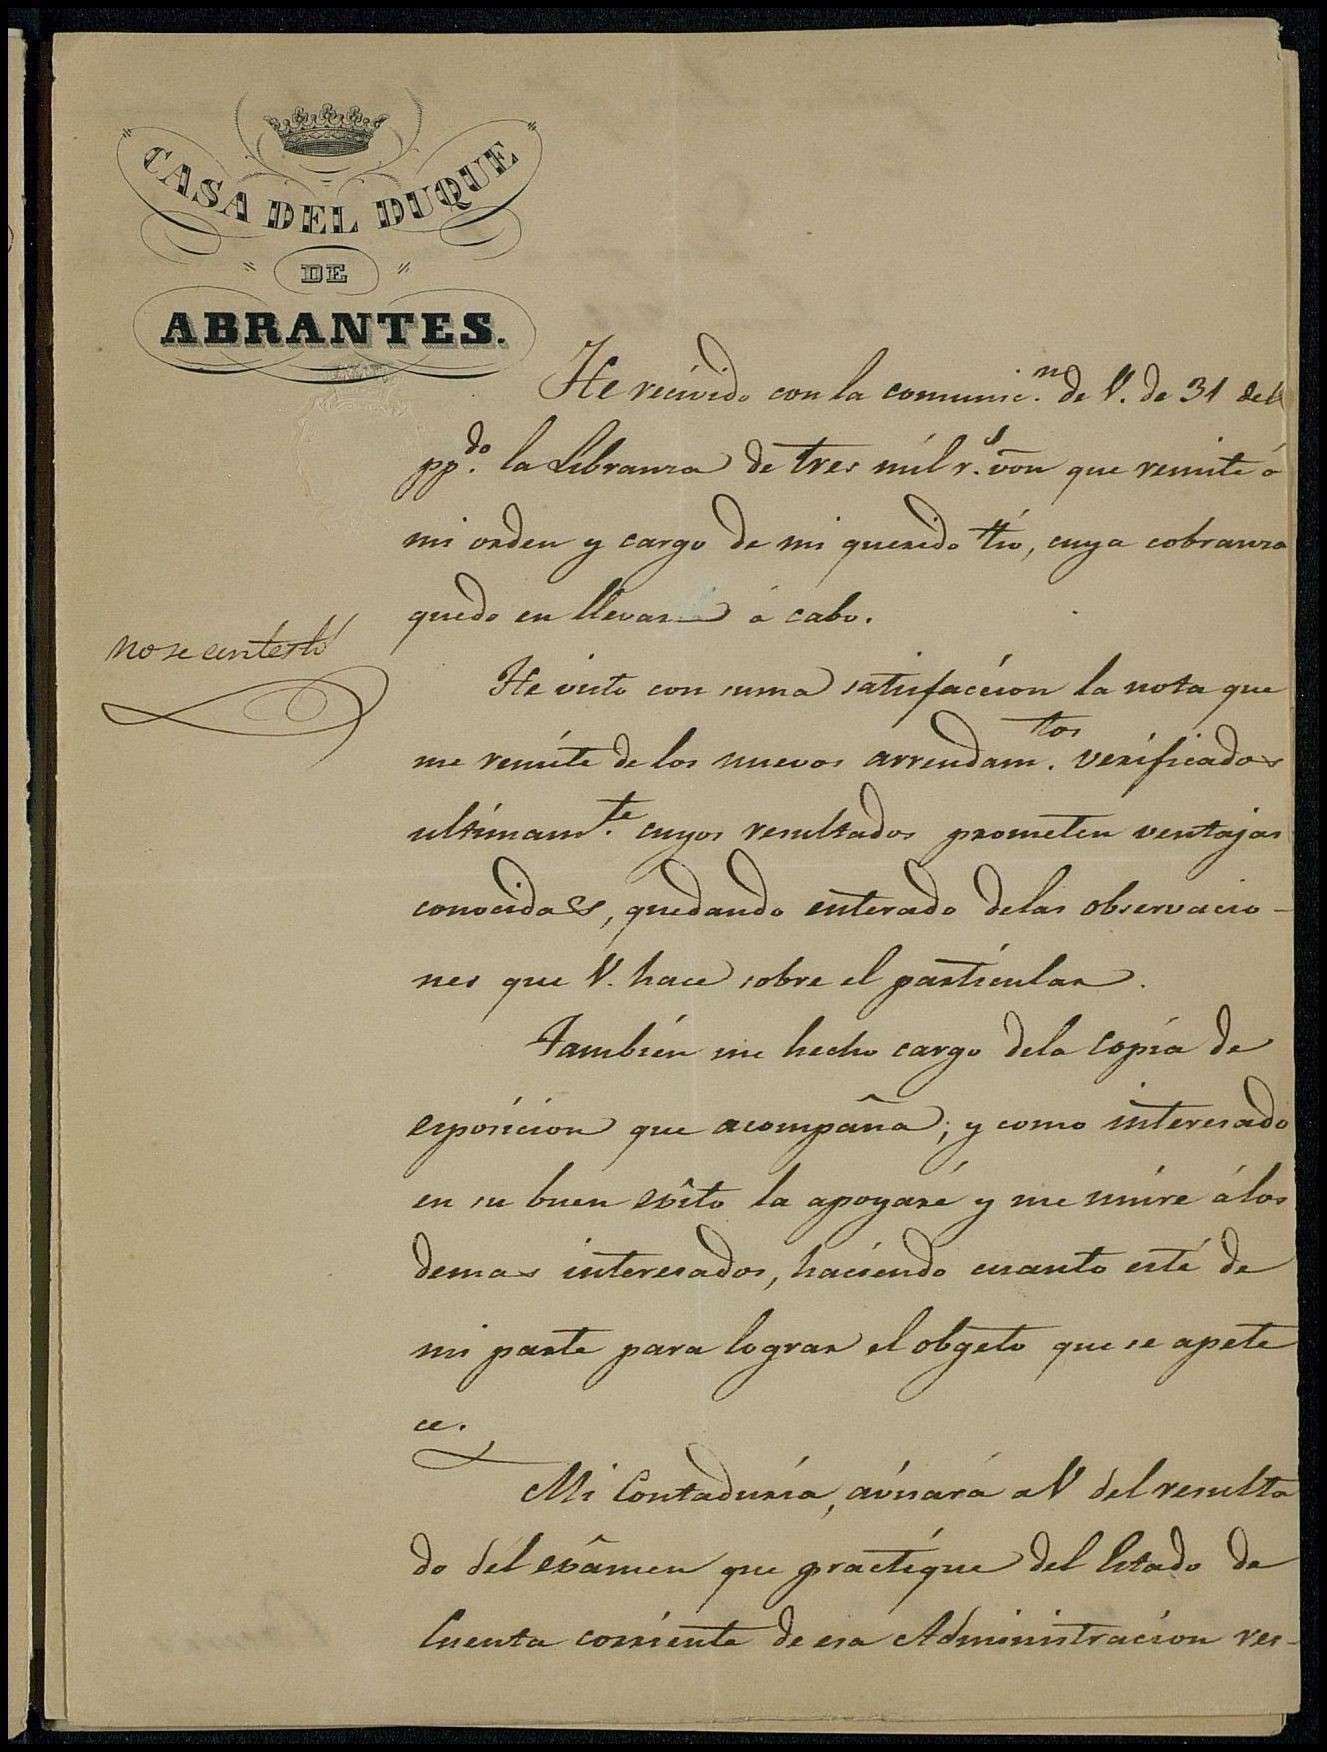 CASA DEL DUQUE
DE
ABRANTES.
He recivido con la comunic.n de V. de 31 del
pp.do la Libranza de tres mil r.s von que remite á
mi orden y cargo de mi querido tio, cuya cobranza
quedo en llevar á cabo.
no se contestó
He visto con suma satisfaccion la nota que
me remite de los nuevos arrendam.tos verificados
ultimam.te cuyos resultados prometen ventajas
conocidas, quedando enterado delas observacio-
nes que V. hace sobre el particular.
Tambien me hecho cargo dela copia de
esposicion que acompaña; y como interesado
en su buen exîto la apoyaré y me unire álos
demas interesados, haciendo cuanto esté de
mi parte para lograr el obgeto que se apete
ce.
Mi Contaduria, avisará a V del resulta
do del exâmen que practique del Estado de
Cuenta corriente de esa Administracion res-